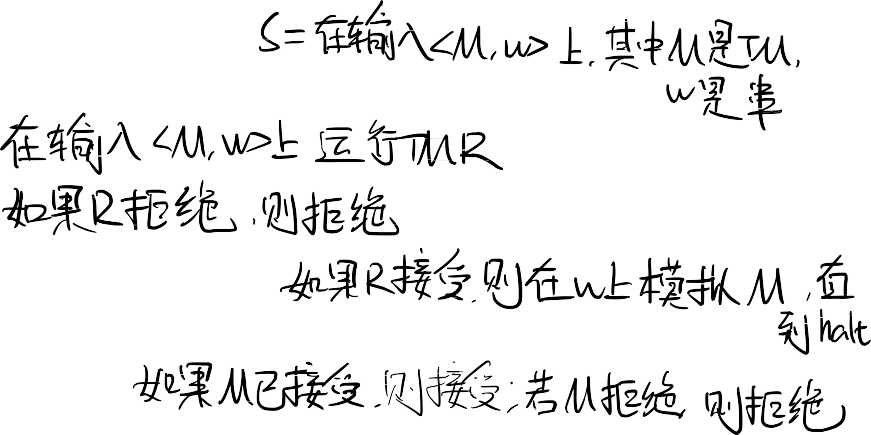 S=在输入<M,w>上,其中M是TM,
w是串
在输入<M,w>上运行TMR
如果R拒绝,则拒绝
如果R接受,则在w上模拟M,直
到halt
如果M已接受,则接受;若M拒绝,则拒绝